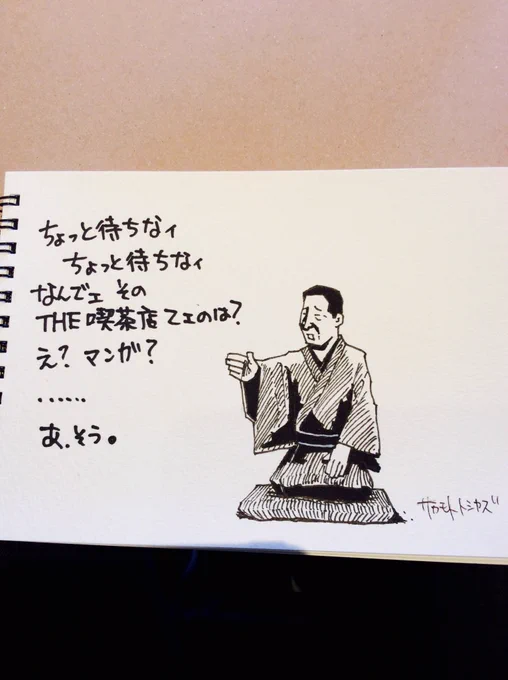 ちょっと待ちなィ
ちょっと待ちなィ
なんでェ その
THE喫茶店てェのは?
え? マンガ?
......
あ、そう。
サカモトトシヤズ